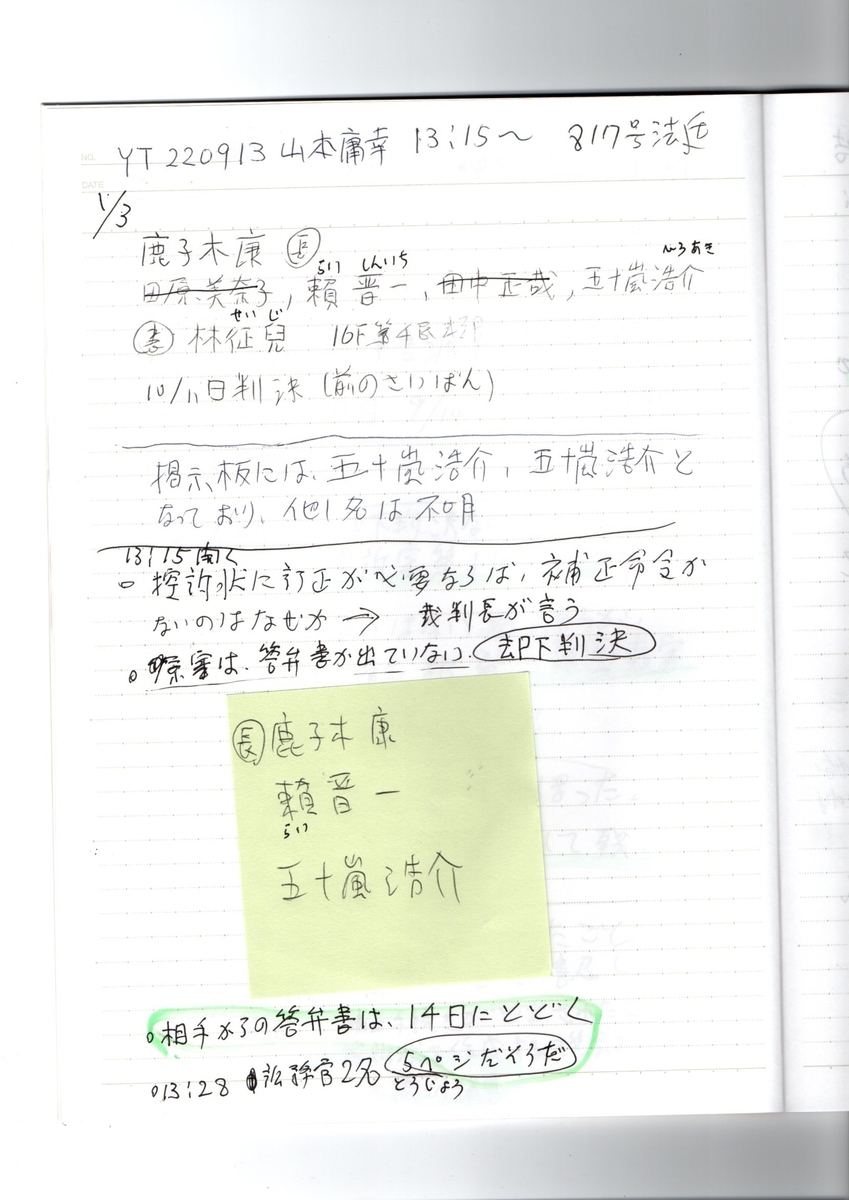 NO.
YT 220913 山本庸幸 13:15〜 817号法廷
DATE
1/3
鹿子木康 長
らい しんいち ひろあき
田原美奈子, 賴晋一, 田中正哉, 五十嵐浩介
せいじ
書 林征兒 16F第4民事部
10/11日判決(前のさいばん)
掲示板には、五十嵐浩介, 五十嵐浩介と
なっており、他1名は不明
13:15開く
○ 控訴状に訂正が必要ならば、補正命令が
ないのはなぜか → 裁判長が言う
○ 原審は、答弁書が出ていない. 却下判決
長 鹿子木康
賴晋一
らい
五十嵐浩介
○相手からの答弁書は、14日にとどく
○13:28 訟務官2名 5ページだそうだ
とうじょう